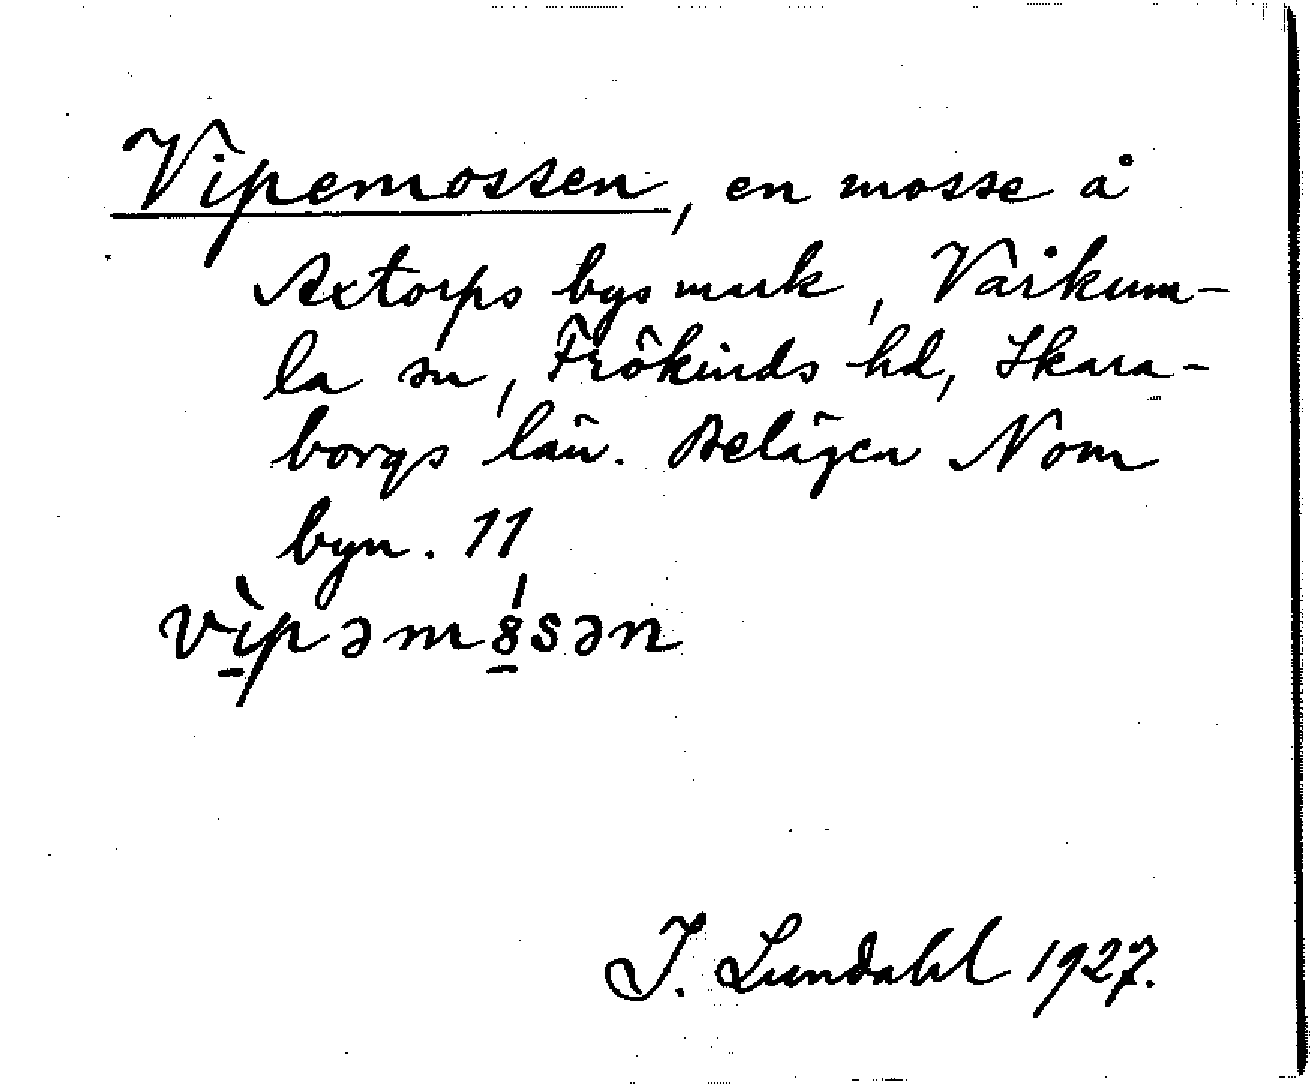 Vipemossen, en mosse å
Axtorps bys mark, Vårkum-
la sn, Frökinds hd, Skara-
borgs län. Belägen N om
byn. 11
vìpəm8́sən
I. Lundahl 1927.